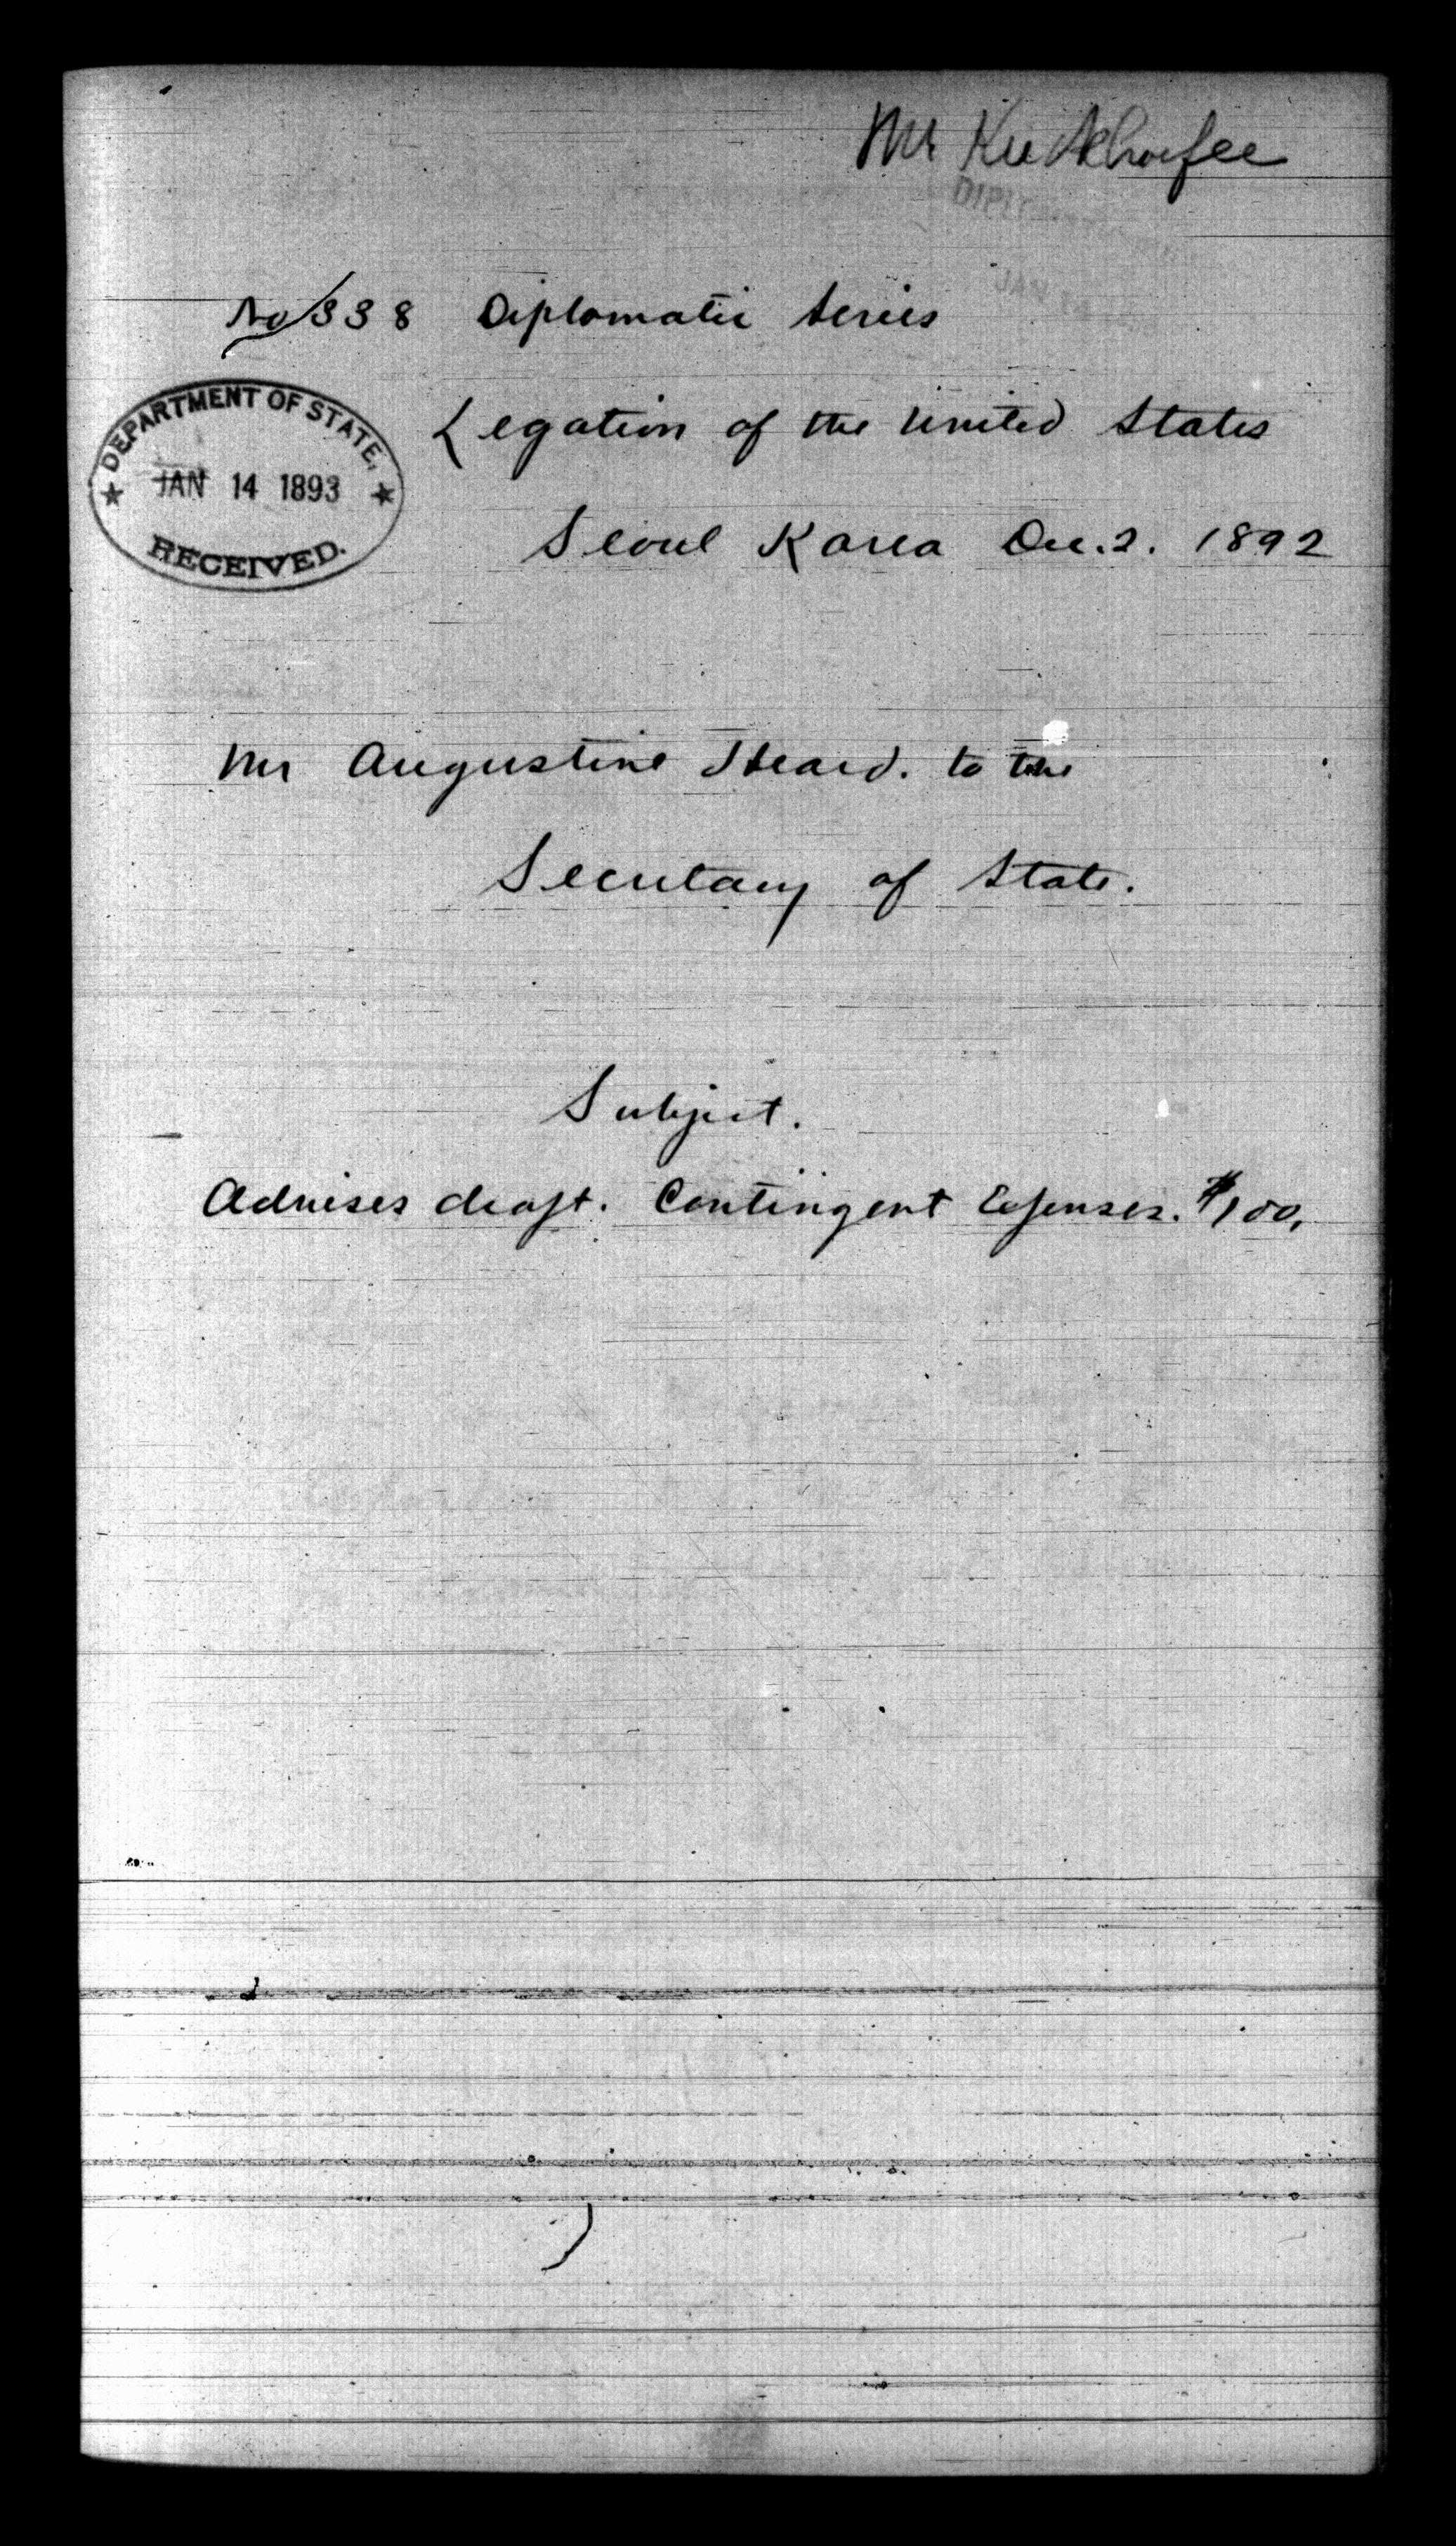 Mr
No 338 Diplomatic Series
DEPARTMENT OF STATE,
JAN 14 1893
RECEIVED.
Legation of the United States
Seoul Korea Dec. 2. 1892
Mr Augustine Heard. to the
Secretary of State.
Subject.
Advises draft. Contingent Expenses. $100,